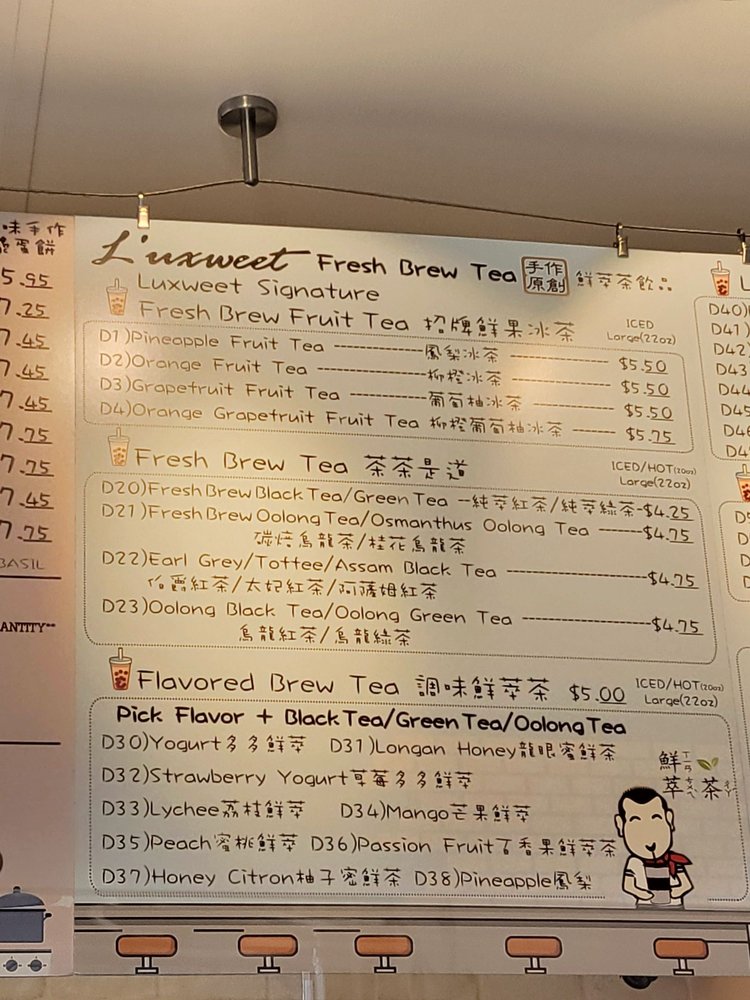 味手作
蛋餅
5.95
7.25
7.45
7.45
7.45
7.75
7.75
7.45
7.75
BASIL
ANTITY**
L'uxweet Fresh Brew Tea 手作原創 鮮萃茶飲品
Luxweet Signature
Fresh Brew Fruit Tea 招牌鮮果冰茶 ICED Large(22oz)
D1)Pineapple Fruit Tea --------------鳳梨冰茶 --------------- $5.50
D2)Orange Fruit Tea ------------------柳橙冰茶 --------------- $5.50
D3)Grapefruit Fruit Tea ------------葡萄柚冰茶 ------------ $5.50
D4)Orange Grapefruit Fruit Tea 柳橙葡萄柚冰茶 ------- $5.75
Fresh Brew Tea 茶茶是道 ICED/HOT(20oz) Large(22oz)
D20)Fresh Brew Black Tea/Green Tea --純萃紅茶/純萃綠茶-$4.25
D21)Fresh Brew Oolong Tea/Osmanthus Oolong Tea ------$4.75
碳焙烏龍茶/桂花烏龍茶
D22)Earl Grey/Toffee/Assam Black Tea --------------------$4.75
伯爵紅茶/太妃紅茶/阿薩姆紅茶
D23)Oolong Black Tea/Oolong Green Tea ------------------$4.75
烏龍紅茶/烏龍綠茶
Flavored Brew Tea 調味鮮萃茶 $5.00 ICED/HOT(20oz) Large(22oz)
Pick Flavor + Black Tea/Green Tea/Oolong Tea
D30)Yogurt多多鮮萃 D31)Longan Honey龍眼蜜鮮茶
D32)Strawberry Yogurt草莓多多鮮萃
D33)Lychee荔枝鮮萃 D34)Mango芒果鮮萃
D35)Peach蜜桃鮮萃 D36)Passion Fruit百香果鮮萃茶
D37)Honey Citron柚子密鮮茶 D38)Pineapple鳳梨
鮮
萃茶
L
D40)
D41)
D42
D43
D44
D45
D46
D4
D5
D
D
D